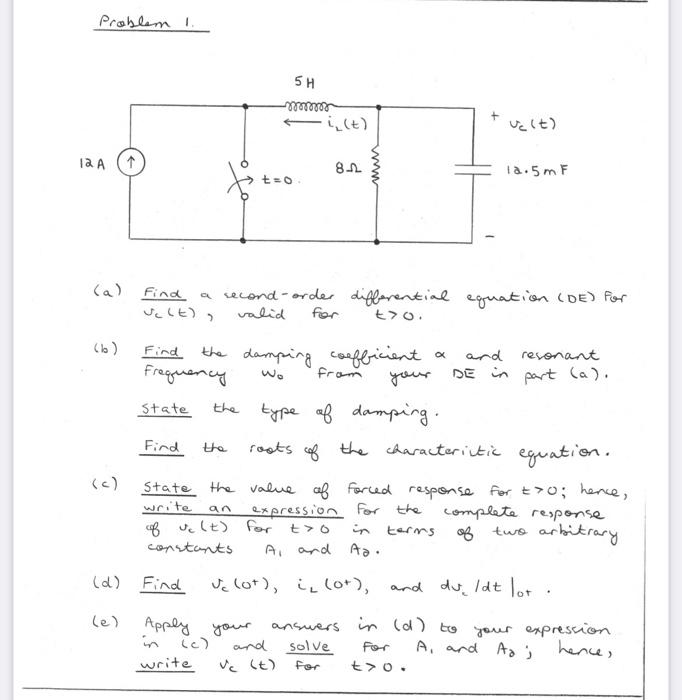 Problem 1.
5H
← i_L(t)
+ v_c(t)
12A ↑
t=0.
8Ω
12.5mF
−
(a) Find a second-order differential equation (DE) for
v_c(t), valid for t>0.
(b) Find the damping coefficient α and resonant
frequency ω₀ from your DE in part (a).
State the type of damping.
Find the roots of the characteristic equation.
(c) State the value of forced response for t>0; hence,
write an expression for the complete response
of v_c(t) for t>0 in terms of two arbitrary
constants A₁ and A₂.
(d) Find v_c(0⁺), i_L(0⁺), and dv_c/dt|₀₊.
(e) Apply your answers in (d) to your expression
in (c) and solve for A₁ and A₂; hence,
write v_c(t) for t>0.